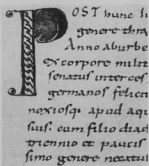 POST hunc li
genere thra
Anno aburbe
Ex corpore milit
senatus interces
germanos felicit
noxiosq; apud aqu
suis. cum filio diad
triennio et paucis
simo genere necatur